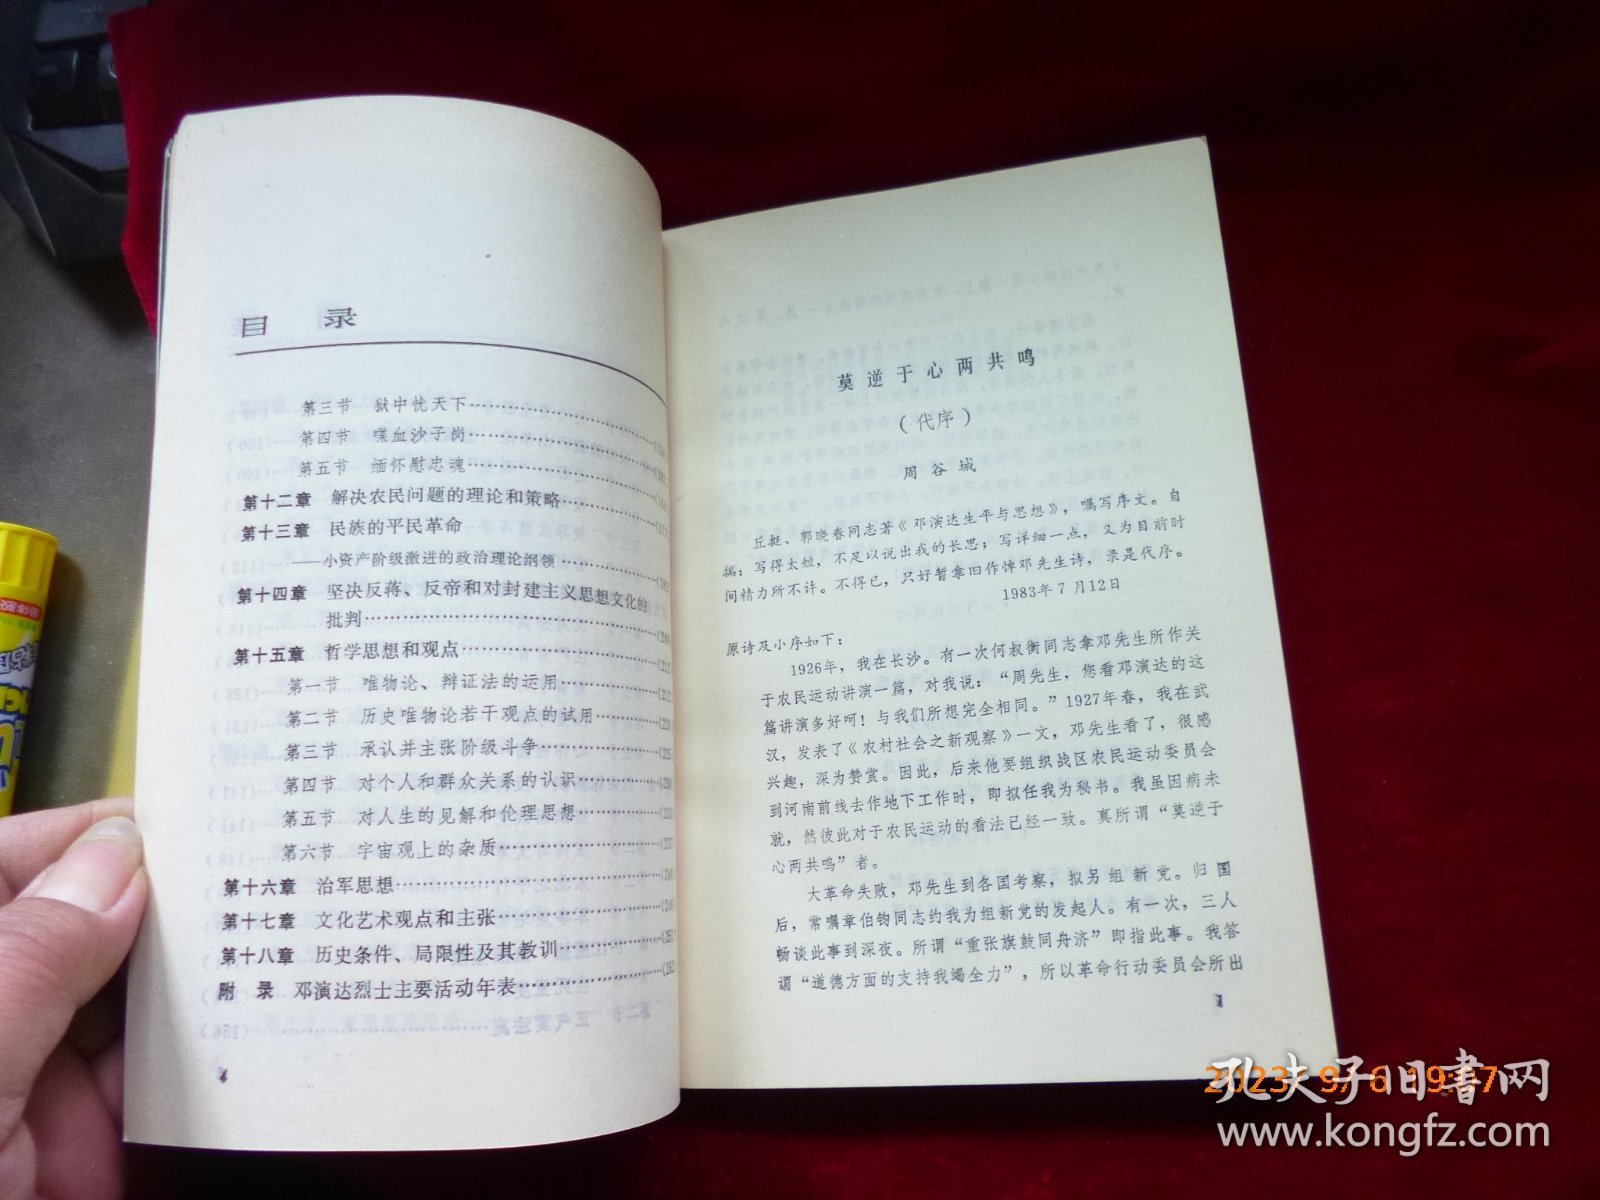 目 录
第三节 狱中忧天下
第四节 喋血沙子岗
第五节 缅怀慰忠魂
第十二章 解决农民问题的理论和策略
第十三章 民族的平民革命
——小资产阶级激进的政治理论纲领
第十四章 坚决反蒋、反帝和对封建主义思想文化的
批判
第十五章 哲学思想和观点
第一节 唯物论、辩证法的运用
第二节 历史唯物论若干观点的试用
第三节 承认并主张阶级斗争
第四节 对个人和群众关系的认识
第五节 对人生的见解和伦理思想
第六节 宇宙观上的杂质
第十六章 治军思想
第十七章 文化艺术观点和主张
第十八章 历史条件、局限性及其教训
附 录 邓演达烈士主要活动年表
莫逆于心两共鸣
（代序）
周谷城
丘挺、郭晓春同志著《邓演达生平与思想》，嘱写序文。自
揣：写得太短，不足以说出我的长思；写详细一点，又为目前时
间精力所不许。不得已，只好暂拿旧作悼邓先生诗，录是代序。
1983年7月12日
原诗及小序如下：
1926年，我在长沙。有一次何叔衡同志拿邓先生所作关
于农民运动讲演一篇，对我说：“周先生，您看邓演达的这
篇讲演多好呵！与我们所想完全相同。”1927年春，我在武
汉，发表了《农村社会之新观察》一文，邓先生看了，很感
兴趣，深为赞赏。因此，后来他要组织战区农民运动委员会
到河南前线去作地下工作时，即拟任我为秘书。我虽因病未
就，然彼此对于农民运动的看法已经一致。真所谓“莫逆于
心两共鸣”者。
大革命失败，邓先生到各国考察，拟另组新党。归国
后，常嘱章伯钧同志约我为组新党的发起人。有一次，三人
畅谈此事到深夜。所谓“重张旗鼓同舟济”即指此事。我答
谓“道德方面的支持我竭全力”，所以革命行动委员会所出
1
孔夫子旧书网
www.kongfz.com